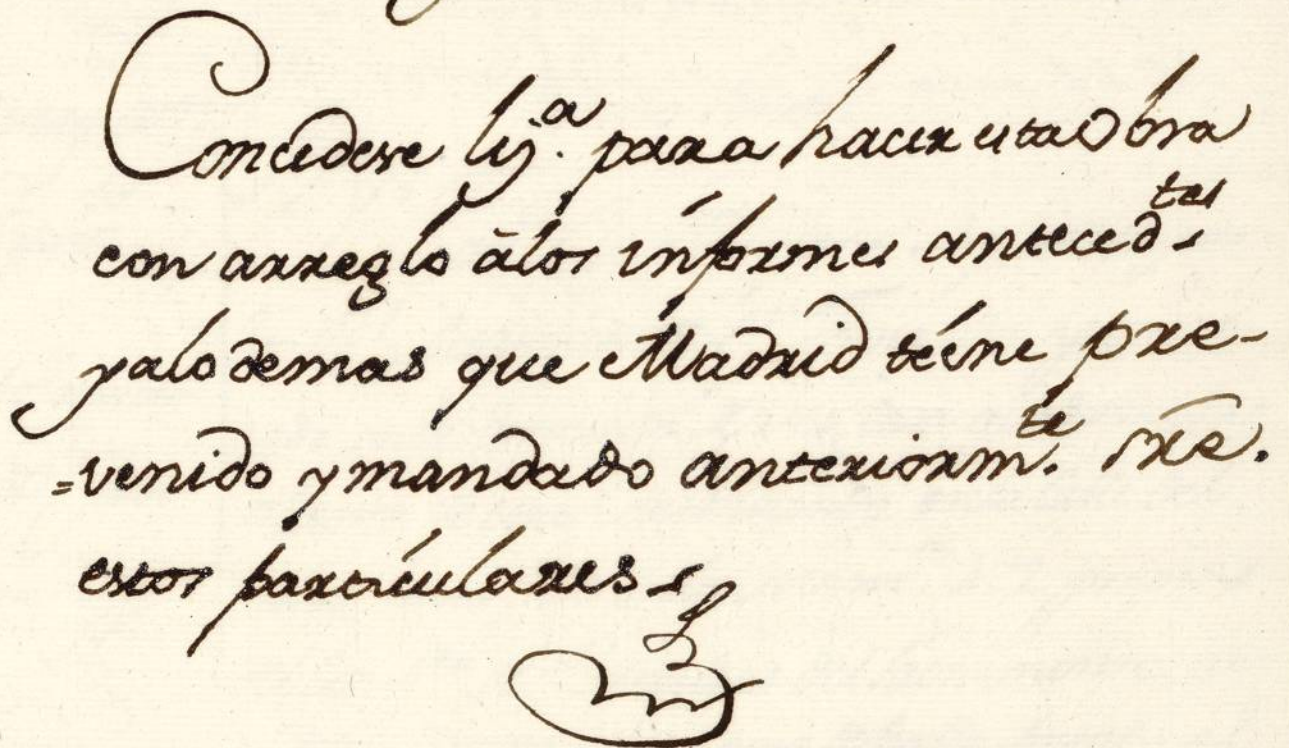 Concedese liz.ᵃ para hacer esta Obra
con arreglo â los informes anteced.ᵗᵉˢ
y a lo demas que Madrid tiene pre-
=venido y mandado anteriorm.ᵗᵉ sre.
estos particulares